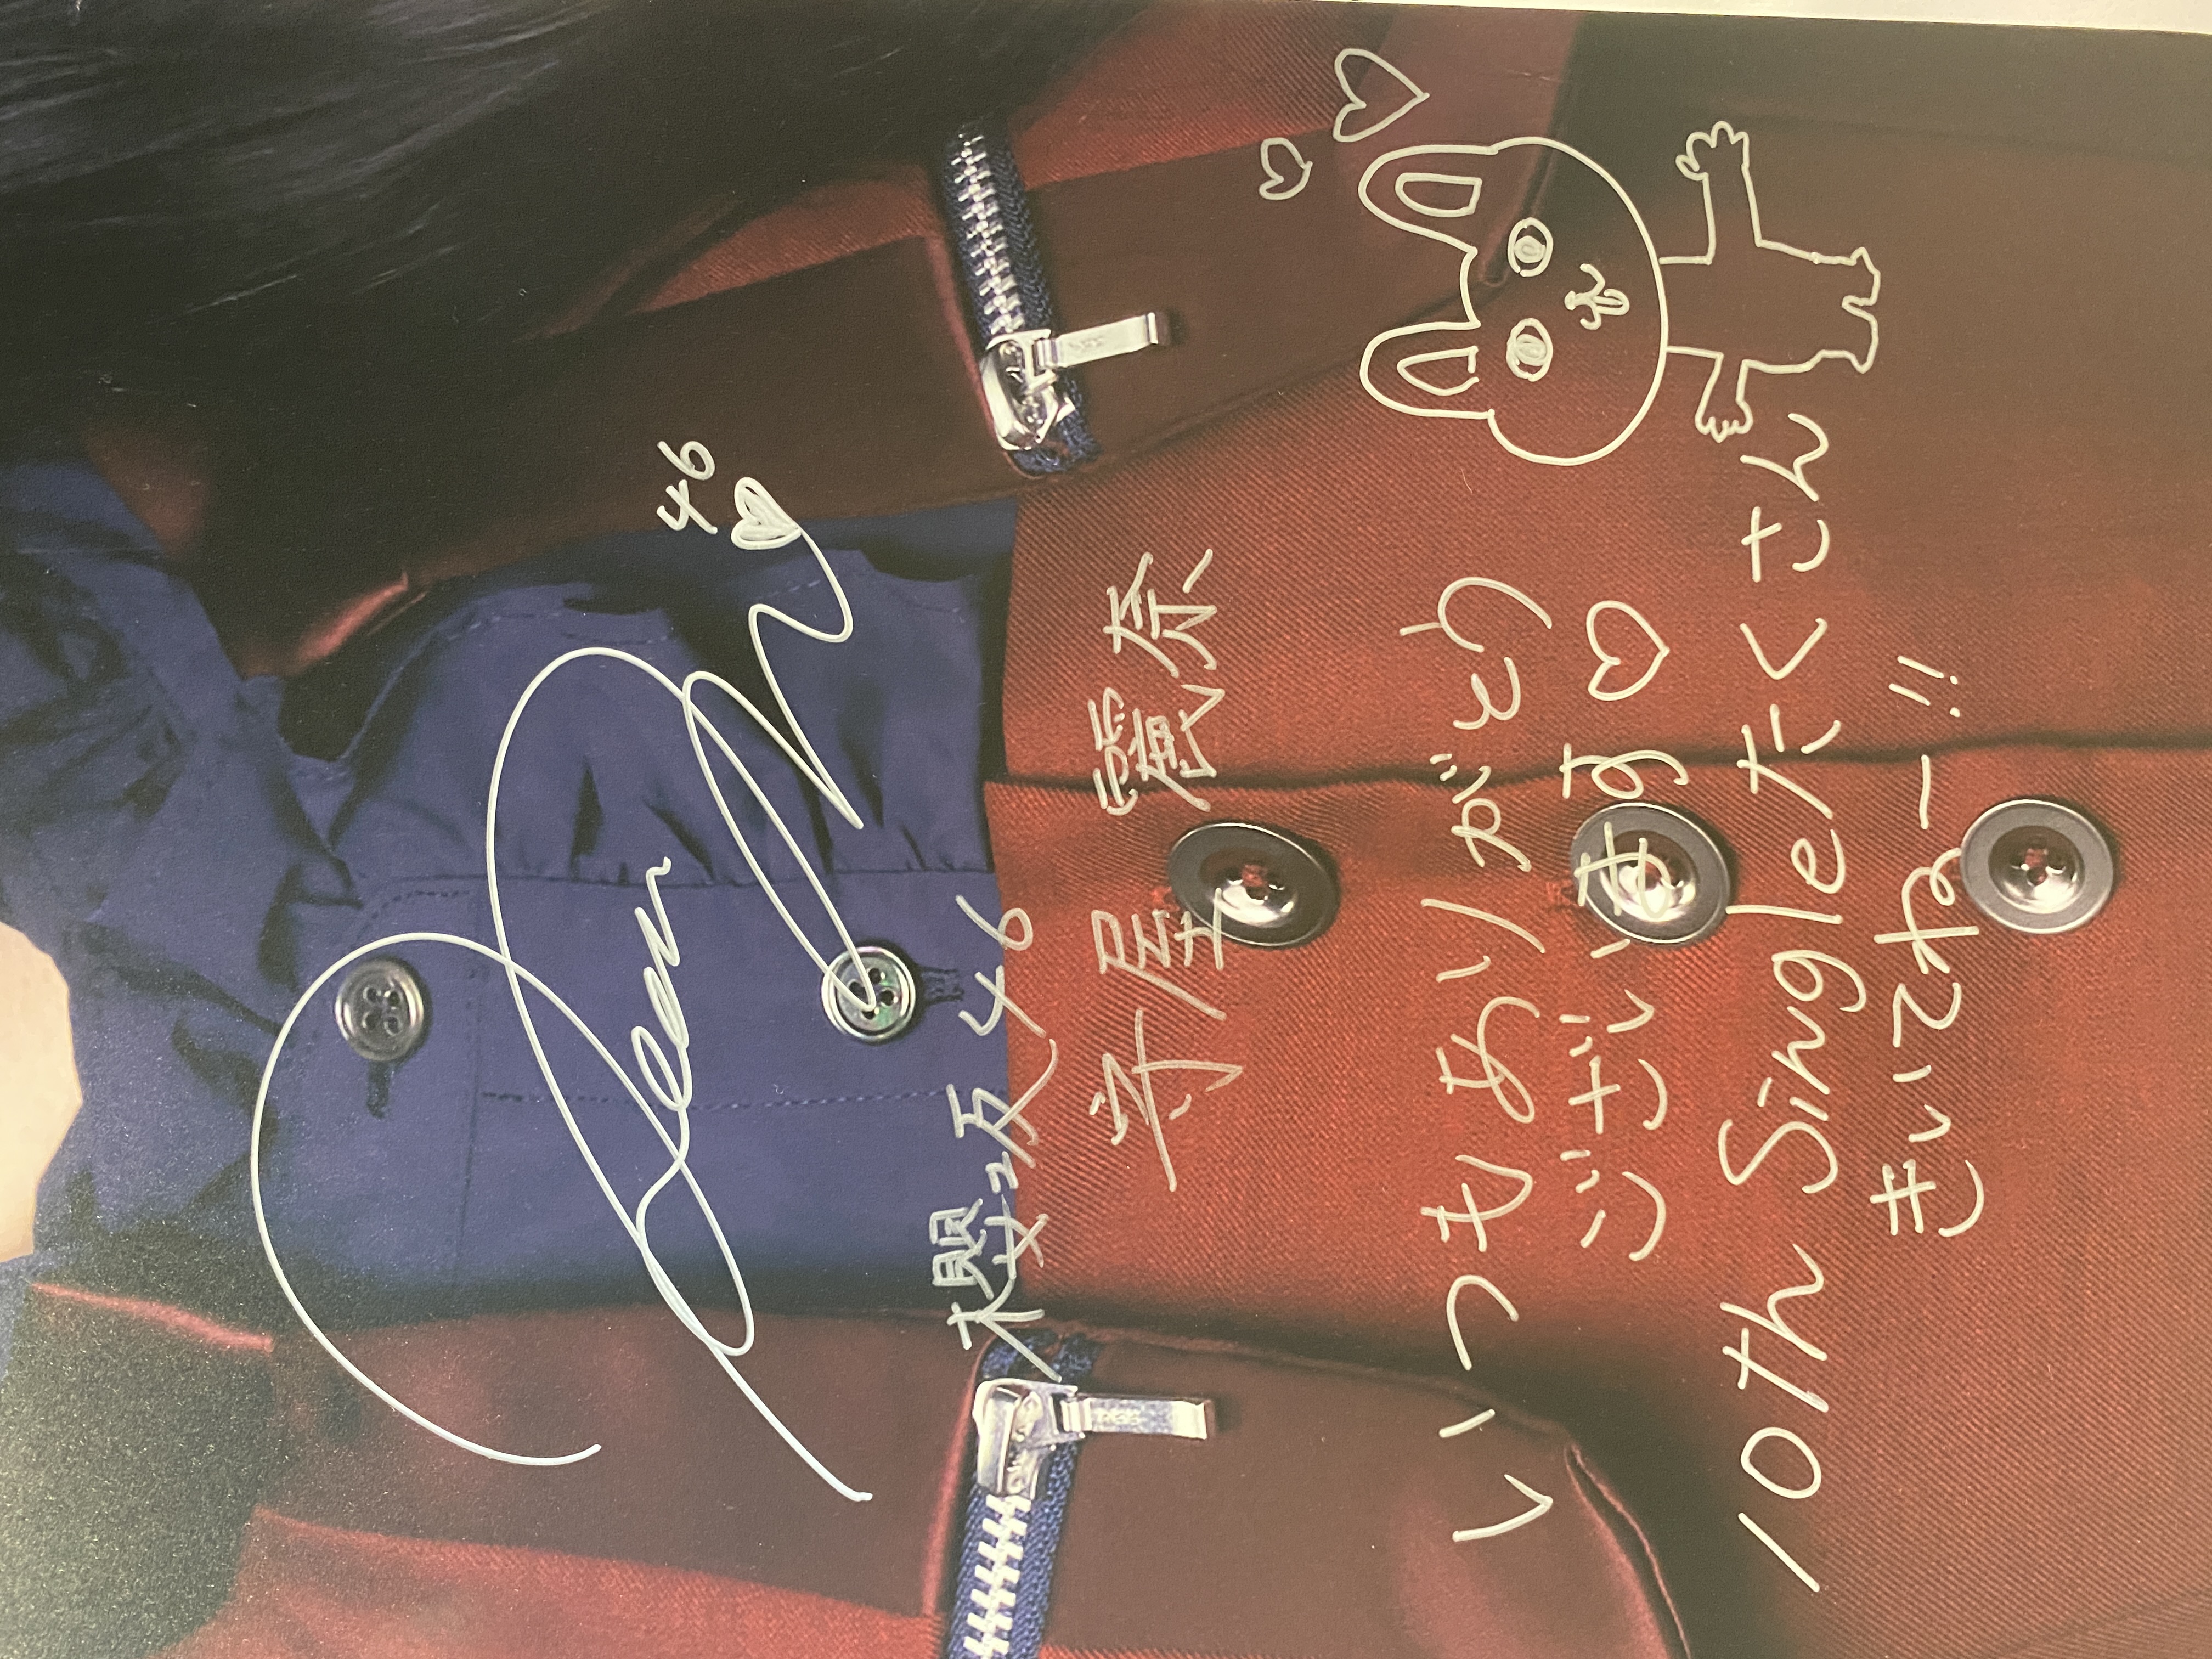 46
櫻坂46
守屋 麗奈
いつもありがとう
ございます♡
10th Singleたくさん
きいてねー!!